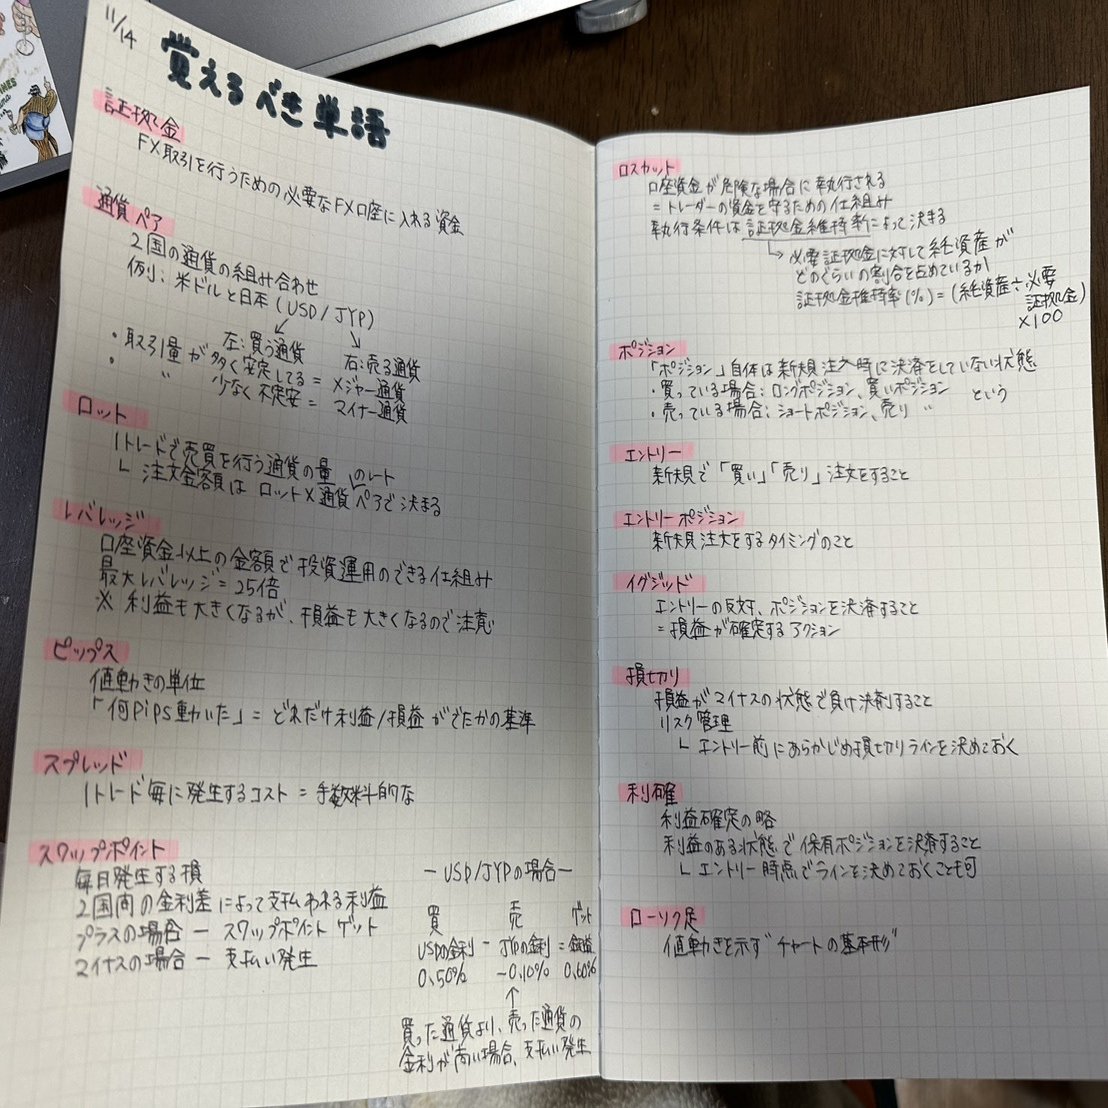 11/14
覚えるべき単語
証拠金
FX取引を行うための必要なFX口座に入れる資金
通貨ペア
2国の通貨の組み合わせ
例)：米ドルと日本(USD/JYP)
左：買う通貨 右：売る通貨
・取引量が多く安定してる＝メジャー通貨
・〃 少なく不定安＝マイナー通貨
ロット
1トレードで売買を行う通貨の量
└ 注文金額は ロット×通貨ペアのレートで決まる
レバレッジ
口座資金以上の金額で投資運用のできる仕組み
最大レバレッジ＝25倍
※ 利益も大きくなるが、損益も大きくなるので注意
ピップス
値動きの単位
「何Pips動いた」＝どれだけ利益/損益がでたかの基準
スプレッド
1トレード毎に発生するコスト＝手数料的な
スワップポイント
毎日発生する損
2国間の金利差によって支払われる利益
プラスの場合ー スワップポイントゲット
マイナスの場合ー 支払い発生
ー USD/JYPの場合ー
買 売 ゲット
USDの金利 － JYPの金利 ＝
0.50% －0.10% 0.60%
↑
買った通貨より、売った通貨の
金利が高い場合、支払い発生
ロスカット
口座資金が危険な場合に執行される
＝トレーダーの資金を守るための仕組み
執行条件は証拠金維持率によって決まる
↳ 必要証拠金に対して純資産が
どのぐらいの割合を占めているか
証拠金維持率(%)＝(純資産÷必要
証拠金)
×100
ポジション
「ポジション」自体は新規注文時に決済をしていない状態
・買っている場合：ロングポジション、買いポジション という
・売っている場合：ショートポジション、売り 〃
エントリー
新規で「買い」「売り」注文をすること
エントリーポジション
新規注文をするタイミングのこと
イグジッド
エントリーの反対、ポジションを決済すること
＝損益が確定するアクション
損切り
損益がマイナスの状態で負け決済すること
リスク管理
└ エントリー前にあらかじめ損切りラインを決めておく
利確
利益確定の略
利益のある状態で保有ポジションを決済すること
└ エントリー時点でラインを決めておくことも可
ローソク足
値動きを示す"チャートの基本形"